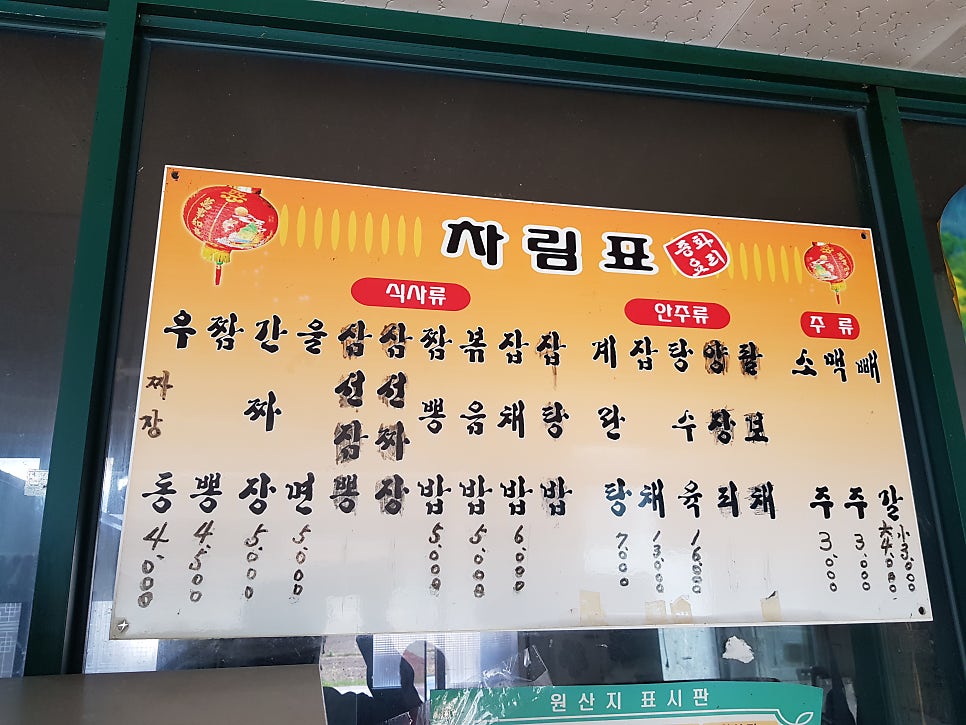 차림표
중화
요리
식사류
안주류
주류
우동 4,000
짜장
짬뽕 4,500
간짜장 5,000
울면 5,000
삼선짬뽕
삼선짜장
짬뽕밥 5,000
볶음밥 5,000
잡채밥 6,000
잡탕밥
계란탕 7,000
잡채 13,000
탕수육 16,000
양장피
팔보채
소주 3,000
맥주 3,000
빼갈 大4,000 小3,000
원산지 표시판